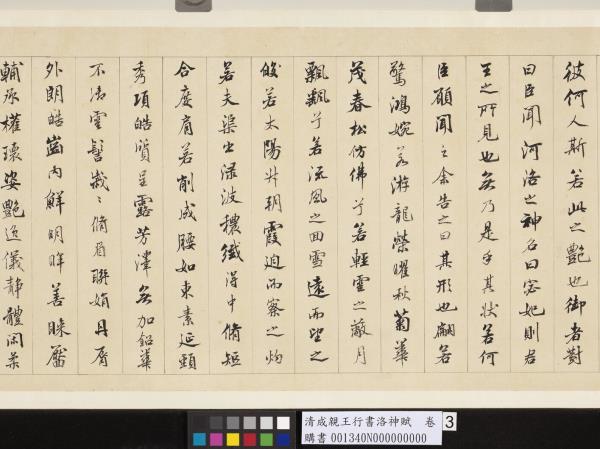 彼何人斯若此之艷也御者對
曰臣聞河洛之神名曰宓妃則君
王之所見也無乃是乎其狀若何
臣願聞之余告之曰其形也翩若
驚鴻婉若游龍榮曜秋菊華
茂春松仿佛兮若輕雲之蔽月
飄飄兮若流風之回雪遠而望之
皎若太陽升朝霞迫而察之灼
若夫渠出淥波穠纖得中脩短
合度肩若削成腰如束素延頸
秀項皓質呈露芳澤無加鉛華
不御雲髻峩〻脩眉聯娟丹脣
外朗皓齒內鮮明眸善睞靨
輔承權瓌姿艷逸儀靜體閑柔
清成親王行書洛神賦 卷 3
購書 001340N000000000